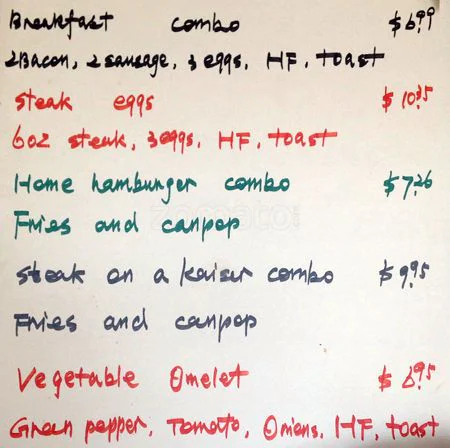 Breakfast combo $6.99
2Bacon, 2 sausage, 3 eggs, HF, toast
Steak eggs $10.95
6oz steak, 3eggs, HF, toast
Home hambunger combo $7.26
Fries and canpop
zomato
Steak on a kaiser combo $9.95
Fries and canpop
Vegetable Omelet $6.95
Green pepper, Tomato, Onions, HF, toast